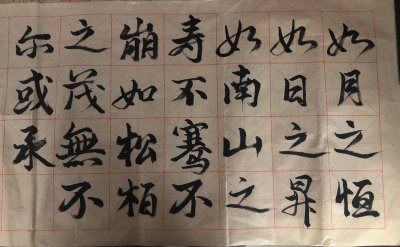 如月之恒
如日之昇
如南山之
寿不骞不
崩如松柏
之茂無不
尔或承